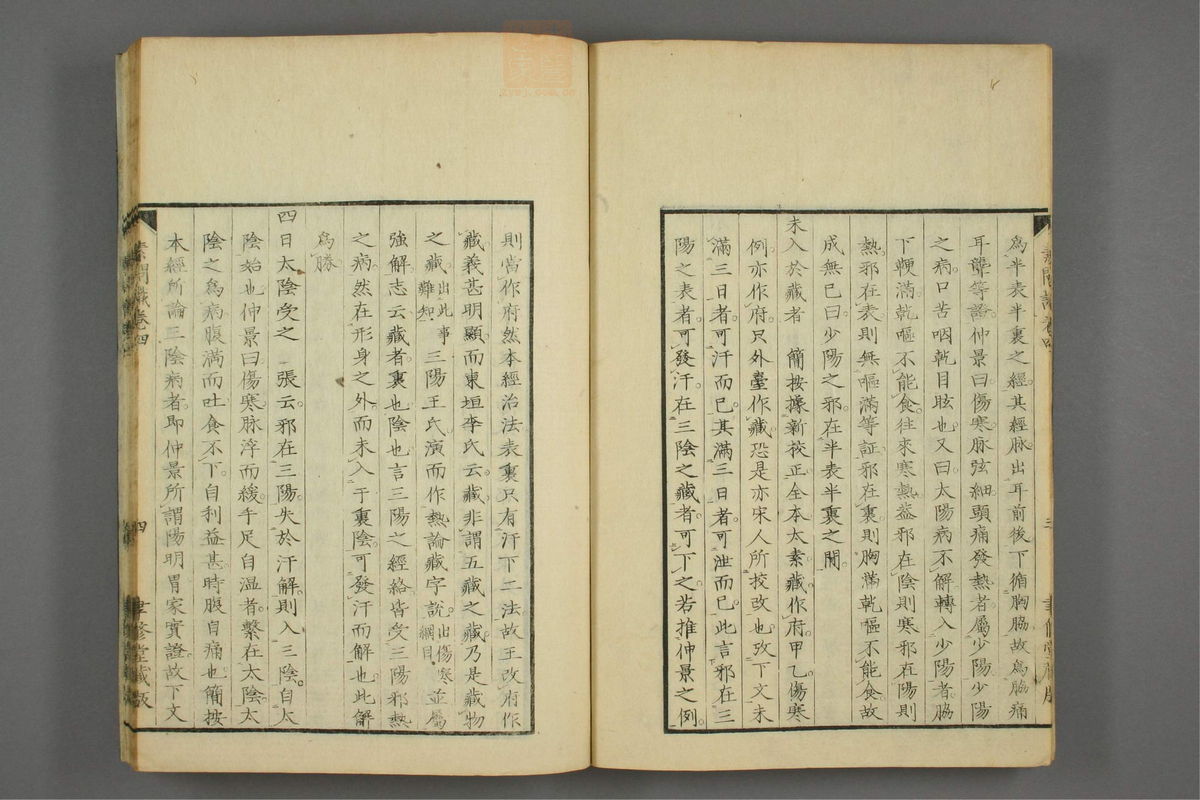 為半表半裏之經。其經脉出耳前後下循胸脇。故為脇痛
耳聾等證。仲景曰傷寒脉弦細。頭痛發熱者。屬少陽少陽
之病。口苦咽乾目眩也。又曰。太陽病不解轉入少陽者。脇
下鞕滿。乾嘔不能食。往來寒熱蓋邪在陰則寒邪在陽則
熱。邪在表。則無嘔滿等証。邪在裏。則胸滿乾嘔不能食。故
成無已曰。少陽之邪。在半表半裏之間。
未入於藏者 簡按據新校正全本太素藏作府。甲乙傷寒
例。亦作府。只外臺作藏。恐是亦宋人所挍改也。攷下文未
滿三日者。可汗而已。其滿三日者。可泄而已。此言邪在三
陽之表者。可發汗。在三陰之藏者。可下之若推仲景之例。
則當作府然本經治法表裏只有汗下二法故王改府作
藏義甚明顯。而東垣李氏云。藏非謂五藏之藏。乃是藏物
之藏。出此事難知。三陽王氏演而作熱論藏字說。出傷寒綱目。並屬
強解志云藏者。裏也陰也言三陽之經絡皆受三陽邪熱
之病。然在形身之外。而未入于裏陰可發汗而解也此解
為勝。
四日太陰受之 張云。邪在三陽。失於汗解。則入三陰。自太
陰始也仲景曰傷寒脉浮而緩。手足自溫者。繫在太陰。太
陰之為病。腹滿而吐。食不下。自利益甚。時腹自痛也。簡按
本經所論三陰病者。即仲景所謂陽明胃家實證。故下文
素問識卷四
四
聿修堂藏版